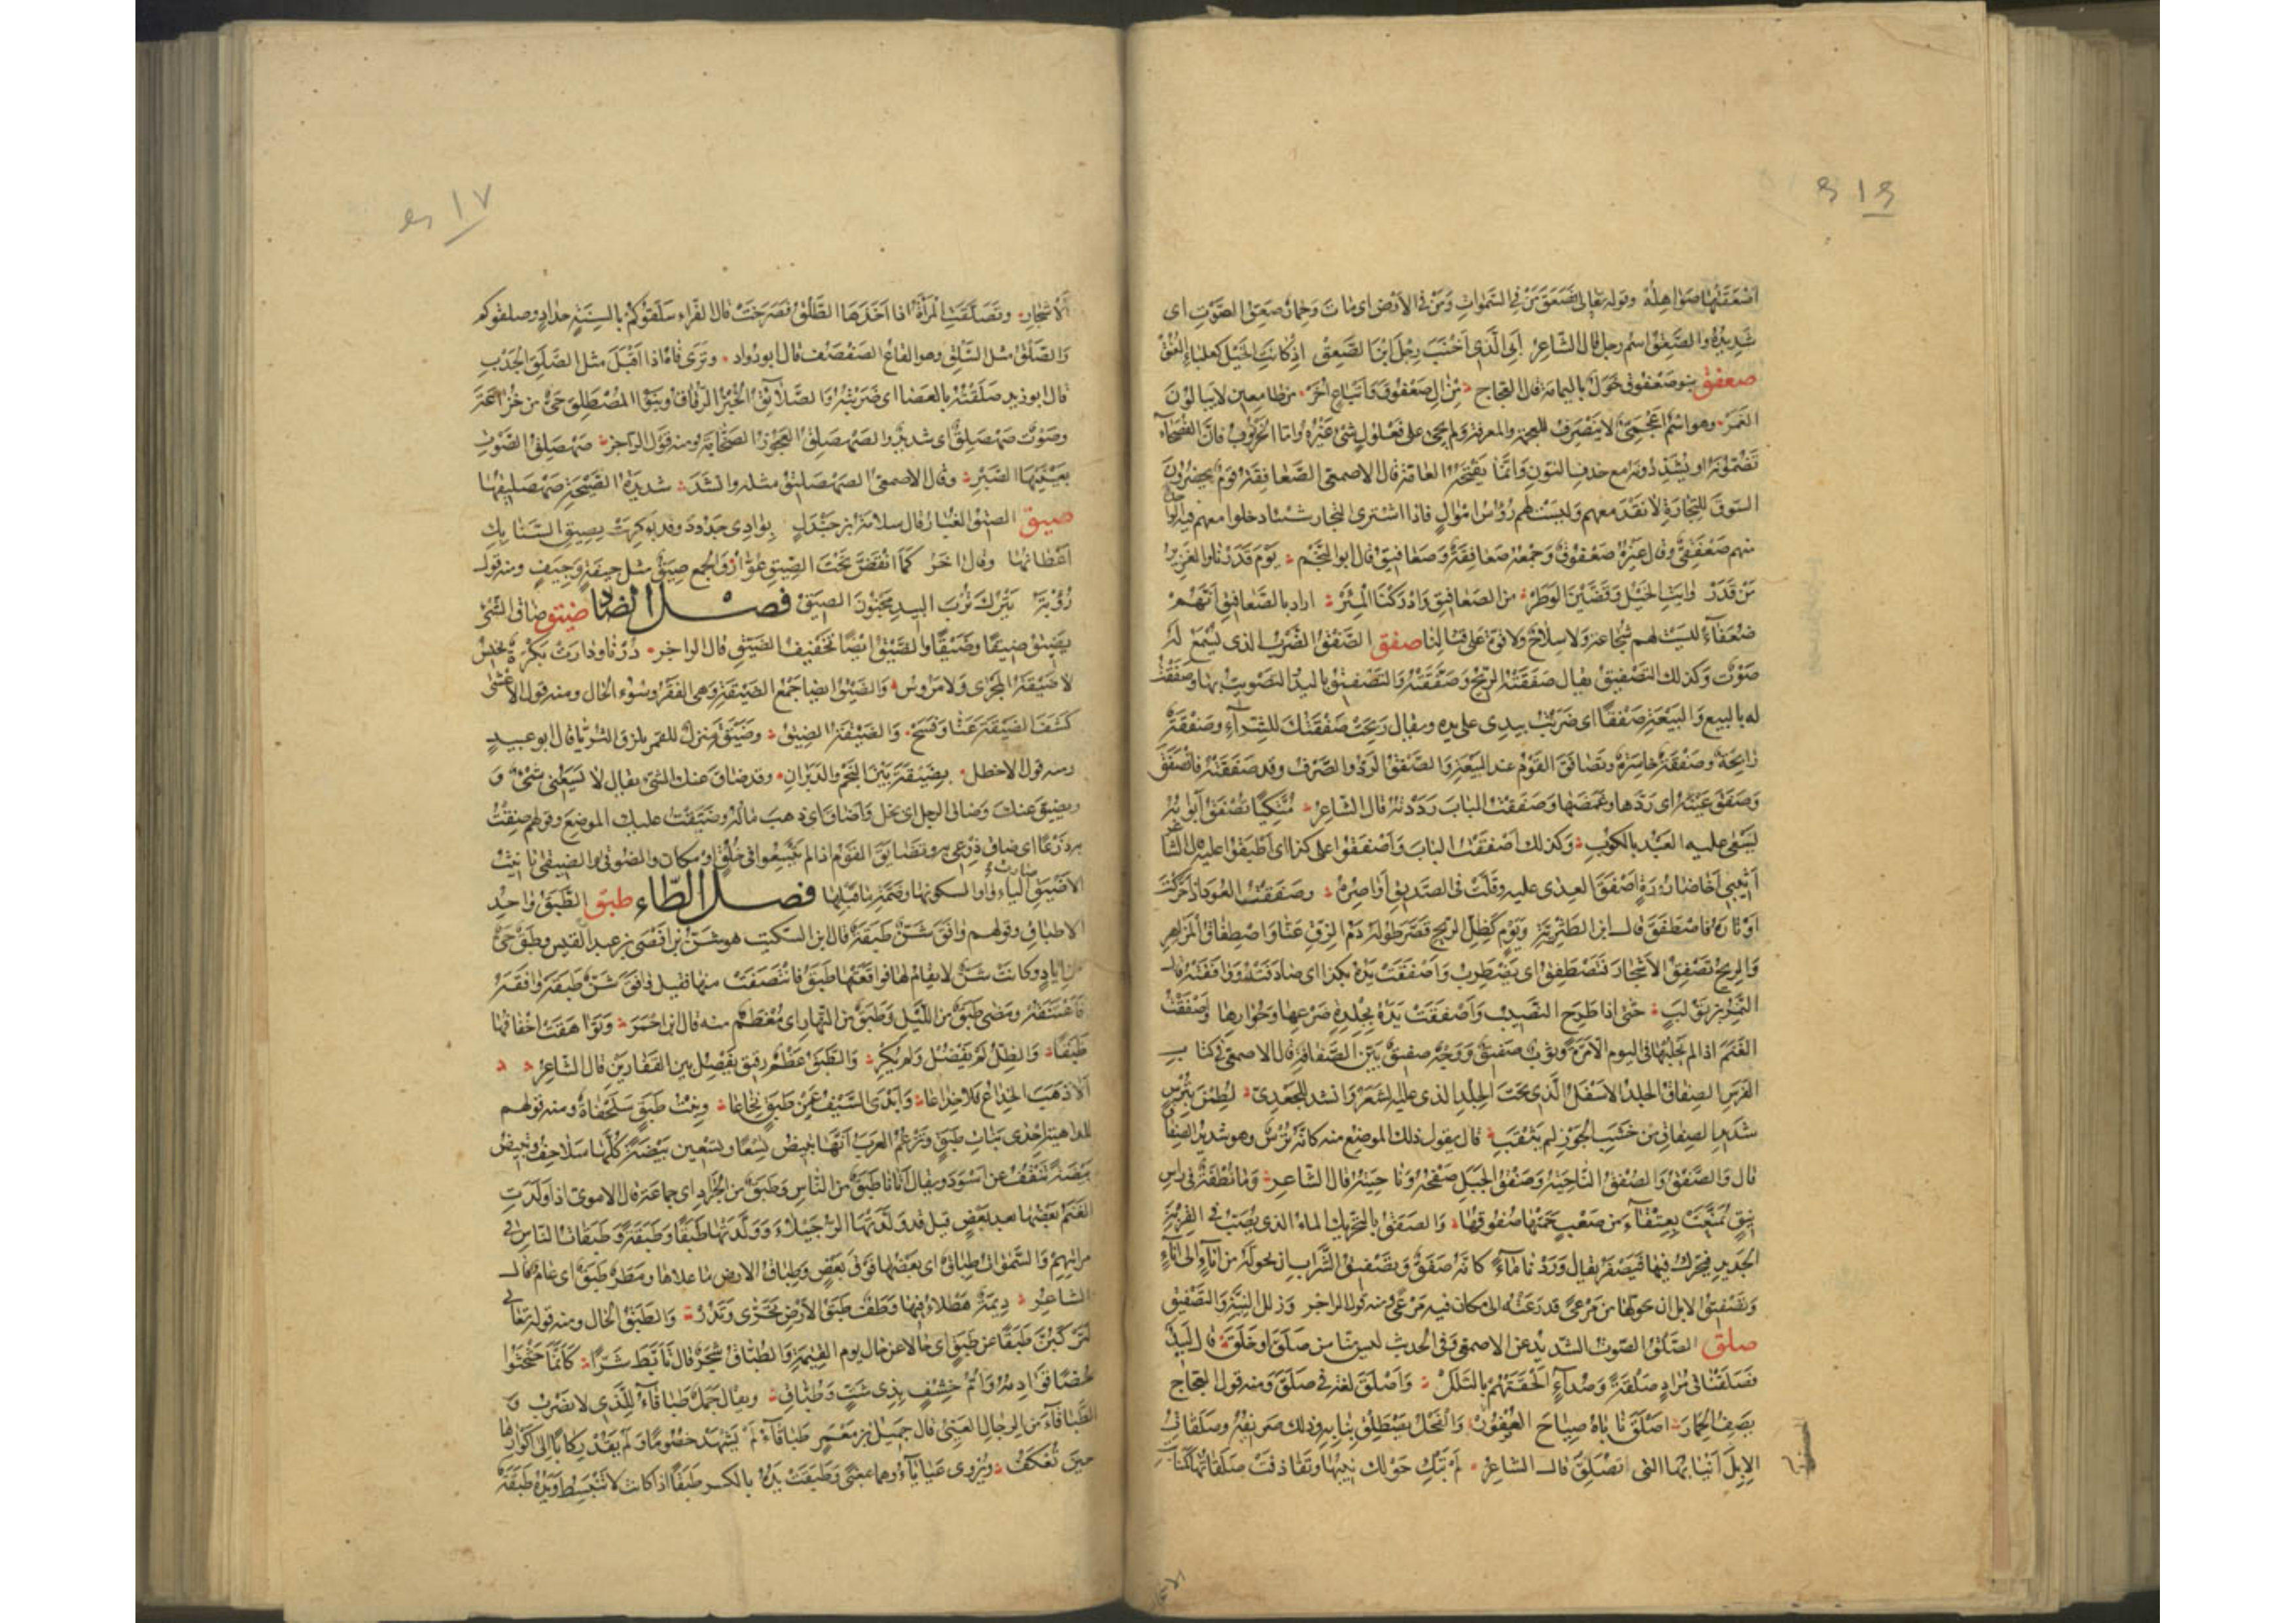 ٤١٦
أصعقتها صواهله وقوله تعالى فصعق من في السموات ومن في الأرض اى مات وحمار صعق الصوت اى
شديده والصعق اسم رجل قال الشاعر أبى الذي أخنب رجل ابن الصعق اذ كانت الخيل كعلباء العنق
صعفق بنو صعفوق خول باليمامة قال العجاج من ال صعفوق وأتباع أخر من طامعين لا يبالون
الغمر وهو اسم أعجمي لا ينصرف للعجمة والمعرفة ولم يجئ على فعلول شئ غيره واما الخرنوب فان الفصحاء
تضمونه او يشددونه مع حذف النون وانما يفتحه العامة قال الاصمعي الصعافقة قوم يحضرون
السوق للتجارة لا نقد معهم وليست لهم رؤس اموال فاذا اشترى التجار شيئا دخلوا معهم فيه
منهم صعفقي وقال غيره صعفوق وجمعه صعافقة وصعافيق قال ابو النجم يوم قدرنا والعزيز
من قدر وابت الخيل وقضين الوطر من الصعافيق وادركنا المئر اراد بالصعافيق انهم
ضعفاء ليست لهم شجاعة ولا سلاح ولا قوة على قتالنا صفق الصفق الضرب الذى يسمع له
صوت وكذلك التصفيق يقال صفقته الريح وصفقته والتصفيق باليد التصويت بها وصفقت
له بالبيع والبيعة صفقا اى ضربت بيدى على يده ويقال ربحت صفقتك للشراء وصفقة
رابحة وصفقة خاسرة وتصافق القوم عند البيعة والصفق الرد والصرف وقد صفقته فانصفق
وصفق عينه اى ردها وغمضها وصفقت الباب رددته قال الشاعر متكيا تصفق أبوابه
يسعى عليه العبد بالكوب وكذلك أصفقت الباب وأصفقوا على كذا اى أطبقوا عليه قال الشاعر
أثيبي أخا ضارورة أصفق العدى عليه وقلت فى الصديق أواصره وصفقت العود اذا حركت
أوتاره فاصطفق قال ابن الطثرية ويوم كظل الرمح قصر طوله دم الزق عنا واصطفاق المزاهر
والريح تصفق الأشجار فتصطفق اى يضطرب وأصفقت يده بكذا اى صادفته ووافقته قال
النمر بن تولب حتى اذا طرح النصيب وأصفقت يده بجلدة ضرعها وحوارها وأصفقت
الغنم اذا لم تحلبها فى اليوم الا مرة وثوب صفيق ووجه صفيق بين الصفاقة قال الاصمعي فى كتاب
الفرس الصفاق الجلد الاسفل الذي تحت الجلد الذى عليه الشعر وانشد للجعدي لطمن بترس
شديد الصفاق من خشب الجوز لم يثقب قال يقول ذلك الموضع منه كانه ترس وهو شديد الصفاق
قال والصفق والصفق الناحية وصفق الجبل صفحه وناحيته قال الشاعر وما نطفة فى راس
نيق تمنعت بعنقاء من صعب حمتها صفوقها والصفق بالتحريك الماء الذى يصب فى القربة
الجديدة فيحرك فيها فيصفر يقال وردنا ماء كانه صفق وتصفيق الشراب ان يحوله من اناء الى اناء
وتصفيق الابل ان تحولها من مرعى قد رعته الى مكان فيه مرعى ومنه قول الراجز وزلل النية والتصفيق
صلق الصلق الصوت الشديد عن الاصمعي وفى الحديث ليس منا من صلق او حلق قال لبيد
فصلقنا فى مراد صلقة وصداء ألحقتهم بالثلل وأصلق لغة فى صلق ومنه قول العجاج
يصف الحمار أصلق ناباه صياح العصفور والفحل يصطلق بنابه وذلك صريفه وصلقات
الابل أنيابها التى تصلق قال الشاعر لم تبك حولك نيبها وتقاذفت صلقاتها كمنابت
٤١٧
الأشجار وتصلقت المرأة اذا أخذها الطلق فصرخت قال الفراء سلقوكم بألسنة حداد وصلقوكم
والصلق مثل السلق وهو القاع الصفصف قال ابو دواد وترى فاه اذا أقبل مثل الصلق الجدب
قال ابو زيد صلقته بالعصا اى ضربته والصلائق الخبز الرقاق وبنو المصطلق حى من خزاعة
وصوت صهصلق اى شديد والصهصلق العجوز الصخابة ومنه قول الراجز صهصلق الصوت
بعينيها الصبر وقال الاصمعي الصهصليق مثله وانشد شديدة الصيحة صهصليقها
صيق الصيق الغبار قال سلامة بن جندل بوادى جدود وقد بوكرت بصيق السنابك
أعطانها وقال اخر كما انقض تحت الصيق عوار والجمع صيق مثل جيفة وجيف ومنه قول
رؤبة يتركن ترب البيد مجنون الصيق فصل الضاد ضيق ضاق الشئ
يضيق ضيقا وضيقا والضيق ايضا تخفيف الضيق قال الراجز درنا ودارت بكرة نخيس
لا ضيقة المجرى ولا مروس والضيق ايضا جمع الضيقة وهى الفقر وسوء الحال ومنه قول الأعشى
كشف الضيقة عنا وفسح والضيقة الضيق وضيقة منزل للقمر بلزق الثريا قال ابو عبيد
ومنه قول الاخطل بضيقة بين النجم والدبران وقد ضاق عنك الشئ يقال لا يسعنى شئ و
ويضيق عنك وضاق الرجل اى بخل وأضاق اى ذهب ماله وضيقت عليك الموضع وقولهم ضقت
به ذرعا اى ضاق ذرعى به وتضايق القوم اذا لم يتسعوا فى خلق او مكان والضوقى والضيقى تانيث
الأضيق صارت الياء واوا لسكونها وضمة ما قبلها فصل الطاء طبق الطبق واحد
الاطباق وقولهم وافق شن طبقة قال ابن السكيت هو شن بن أفصى بن عبد القيس وطبق حى
من اياد وكانت شن لا يقام لها فواقعتها طبق فانتصفت منها فقيل وافق شن طبقة وافقه
فاعتنقه ومضى طبق من الليل وطبق من النهار اى معظم منه قال ابن احمر وتواهقت أخفافها
طبقا والظل لم يفضل ولم يكر والطبق عظم رقيق يفصل بين الفقارين قال الشاعر
ألا ذهب الخداع فلا خداعا وأبدى السيف عن طبق نخاعا وبنت طبق سلحفاة ومنه قولهم
للداهية احدى بنات طبق وتزعم العرب أنها تبيض تسعا وتسعين بيضة كلها سلاحف وتبيض
بيضة تنقف عن أسود ويقال أتانا طبق من الناس وطبق من الجراد اى جماعة قال الاموى اذا ولدت
الغنم بعضها بعد بعض قيل قد ولدتها الرجيلاء وولدتها طبقا وطبقة وطبقات الناس فى
مراتبهم والسموات طباق اى بعضها فوق بعض وطباق الارض ما علاها ومطر طبق اى عام قال
الشاعر ديمة هطلاء فيها وطف طبق الأرض تحرى وتدر والطبق الحال ومنه قوله تعالى
لتركبن طبقا عن طبق اى حالا عن حال يوم القيمة والطباق شجر قال تأبط شرا كأنما حثحثوا
حصا قوادمه وأم خشف بذى شث وطباق ويقال جمل طباقاء للذى لا يضرب و
الطباقاء من الرجال العيى قال جميل بن معمر طباقاء لم يشهد خصوما ولم يقد ركابا الى أكوارها
حين تعكف ويروى عياياء وهما بمعنى وطبقت يده بالكسر طبقا اذا كانت لا تنبسط ويده طبقة